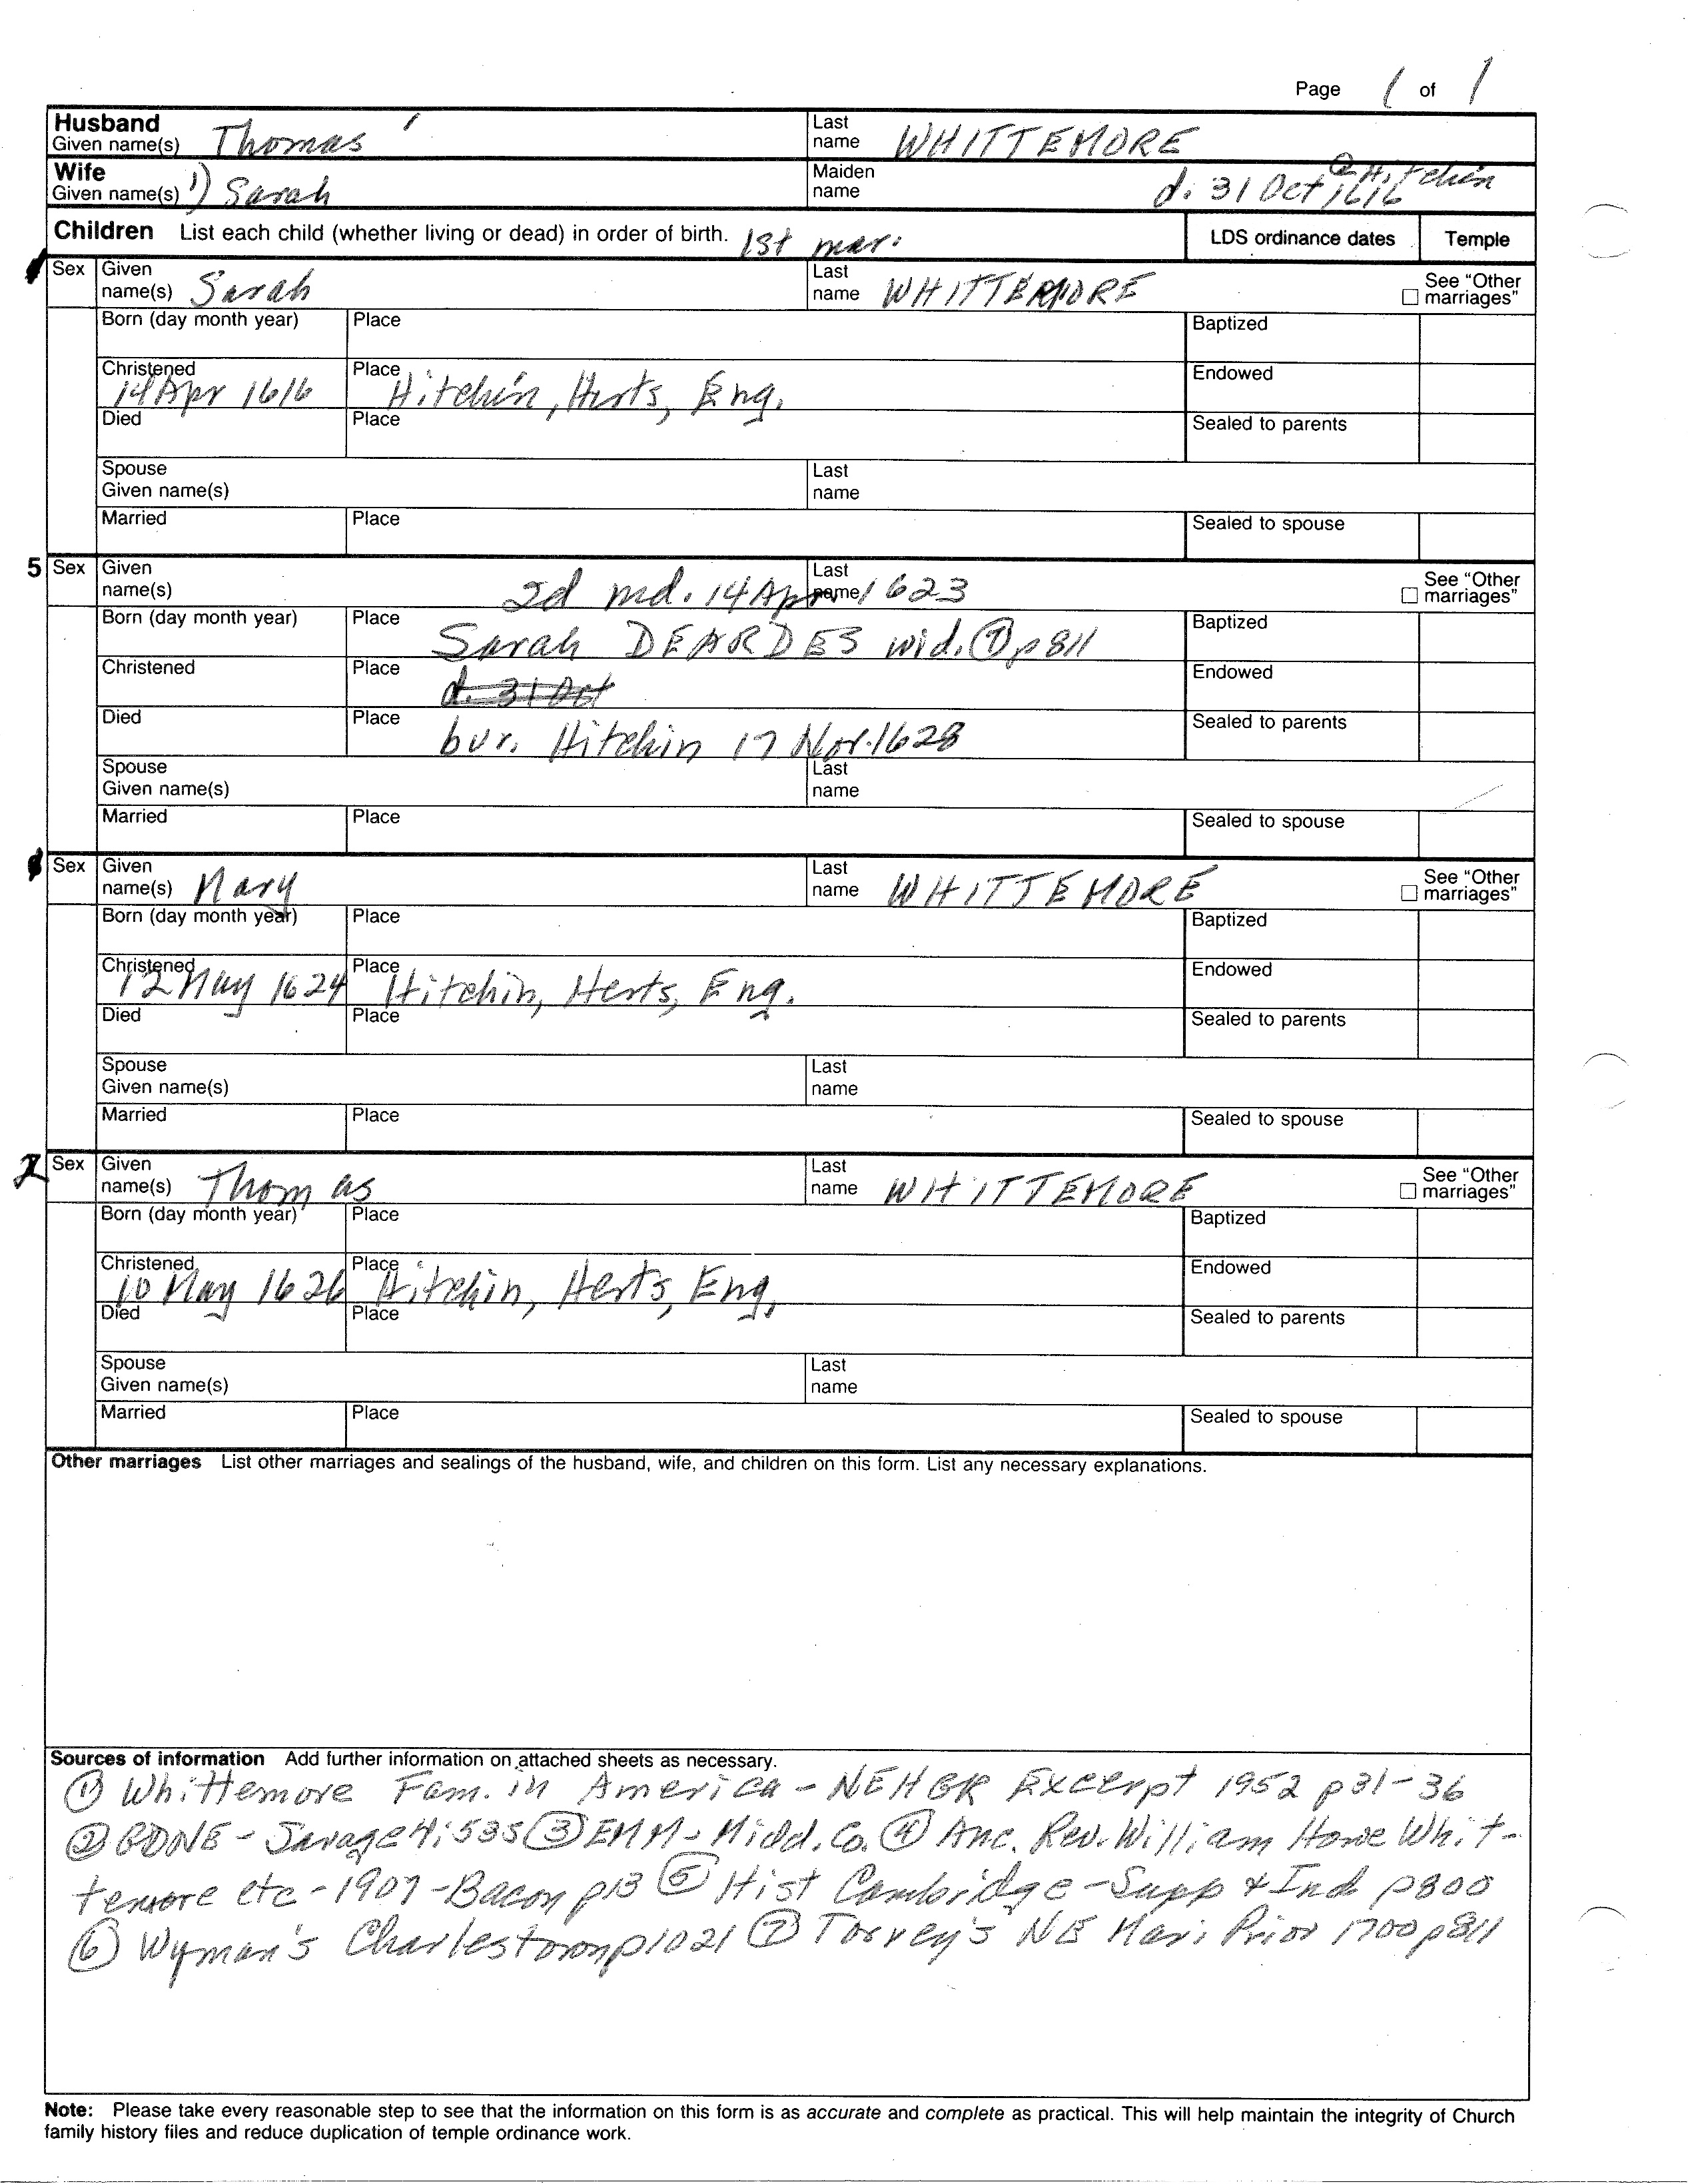 Page 1 of 1
Husband Given name(s) Thomas Last name WHITTEMORE
Wife Given name(s) 1) Sarah Maiden name d. 31 Oct 1616 @ Hitchin
Children List each child (whether living or dead) in order of birth. 1st mar. LDS ordinance dates Temple
Sex Given name(s) Sarah Last name WHITTEMORE See "Other marriages"
Born (day month year) Place Baptized
Christened 14 Apr 1616 Place Hitchin, Herts, Eng. Endowed
Died Place Sealed to parents
Spouse Given name(s) Last name
Married Place Sealed to spouse
5 Sex Given name(s) 2d md. 14 Apr 1623 Last name See "Other marriages"
Born (day month year) Place Sarah DEARDES wid. ⑦ p811 Baptized
Christened Place d. 31 Oct Endowed
Died Place bur. Hitchin 17 Nov. 1628 Sealed to parents
Spouse Given name(s) Last name
Married Place Sealed to spouse
Sex Given name(s) Mary Last name WHITTEMORE See "Other marriages"
Born (day month year) Place Baptized
Christened 12 May 1624 Place Hitchin, Herts, Eng. Endowed
Died Place Sealed to parents
Spouse Given name(s) Last name
Married Place Sealed to spouse
Sex Given name(s) Thomas Last name WHITTEMORE See "Other marriages"
Born (day month year) Place Baptized
Christened 10 May 1626 Place Hitchin, Herts, Eng. Endowed
Died Place Sealed to parents
Spouse Given name(s) Last name
Married Place Sealed to spouse
Other marriages List other marriages and sealings of the husband, wife, and children on this form. List any necessary explanations.
Sources of information Add further information on attached sheets as necessary.
① Whittemore Fam. in America - NEHGR Excerpt 1952 p31-36
② GDNE - Savage 4:535 ③ EMM - Midd. Co. ④ Anc. Rev. William Howe Whit-
temore etc - 1907 - Bacon p13 ⑤ Hist Cambridge - Supp & Ind p800
⑥ Wyman's Charlestown p1021 ⑦ Torrey's NE Mar. Prior 1700 p811
Note: Please take every reasonable step to see that the information on this form is as accurate and complete as practical. This will help maintain the integrity of Church
family history files and reduce duplication of temple ordinance work.